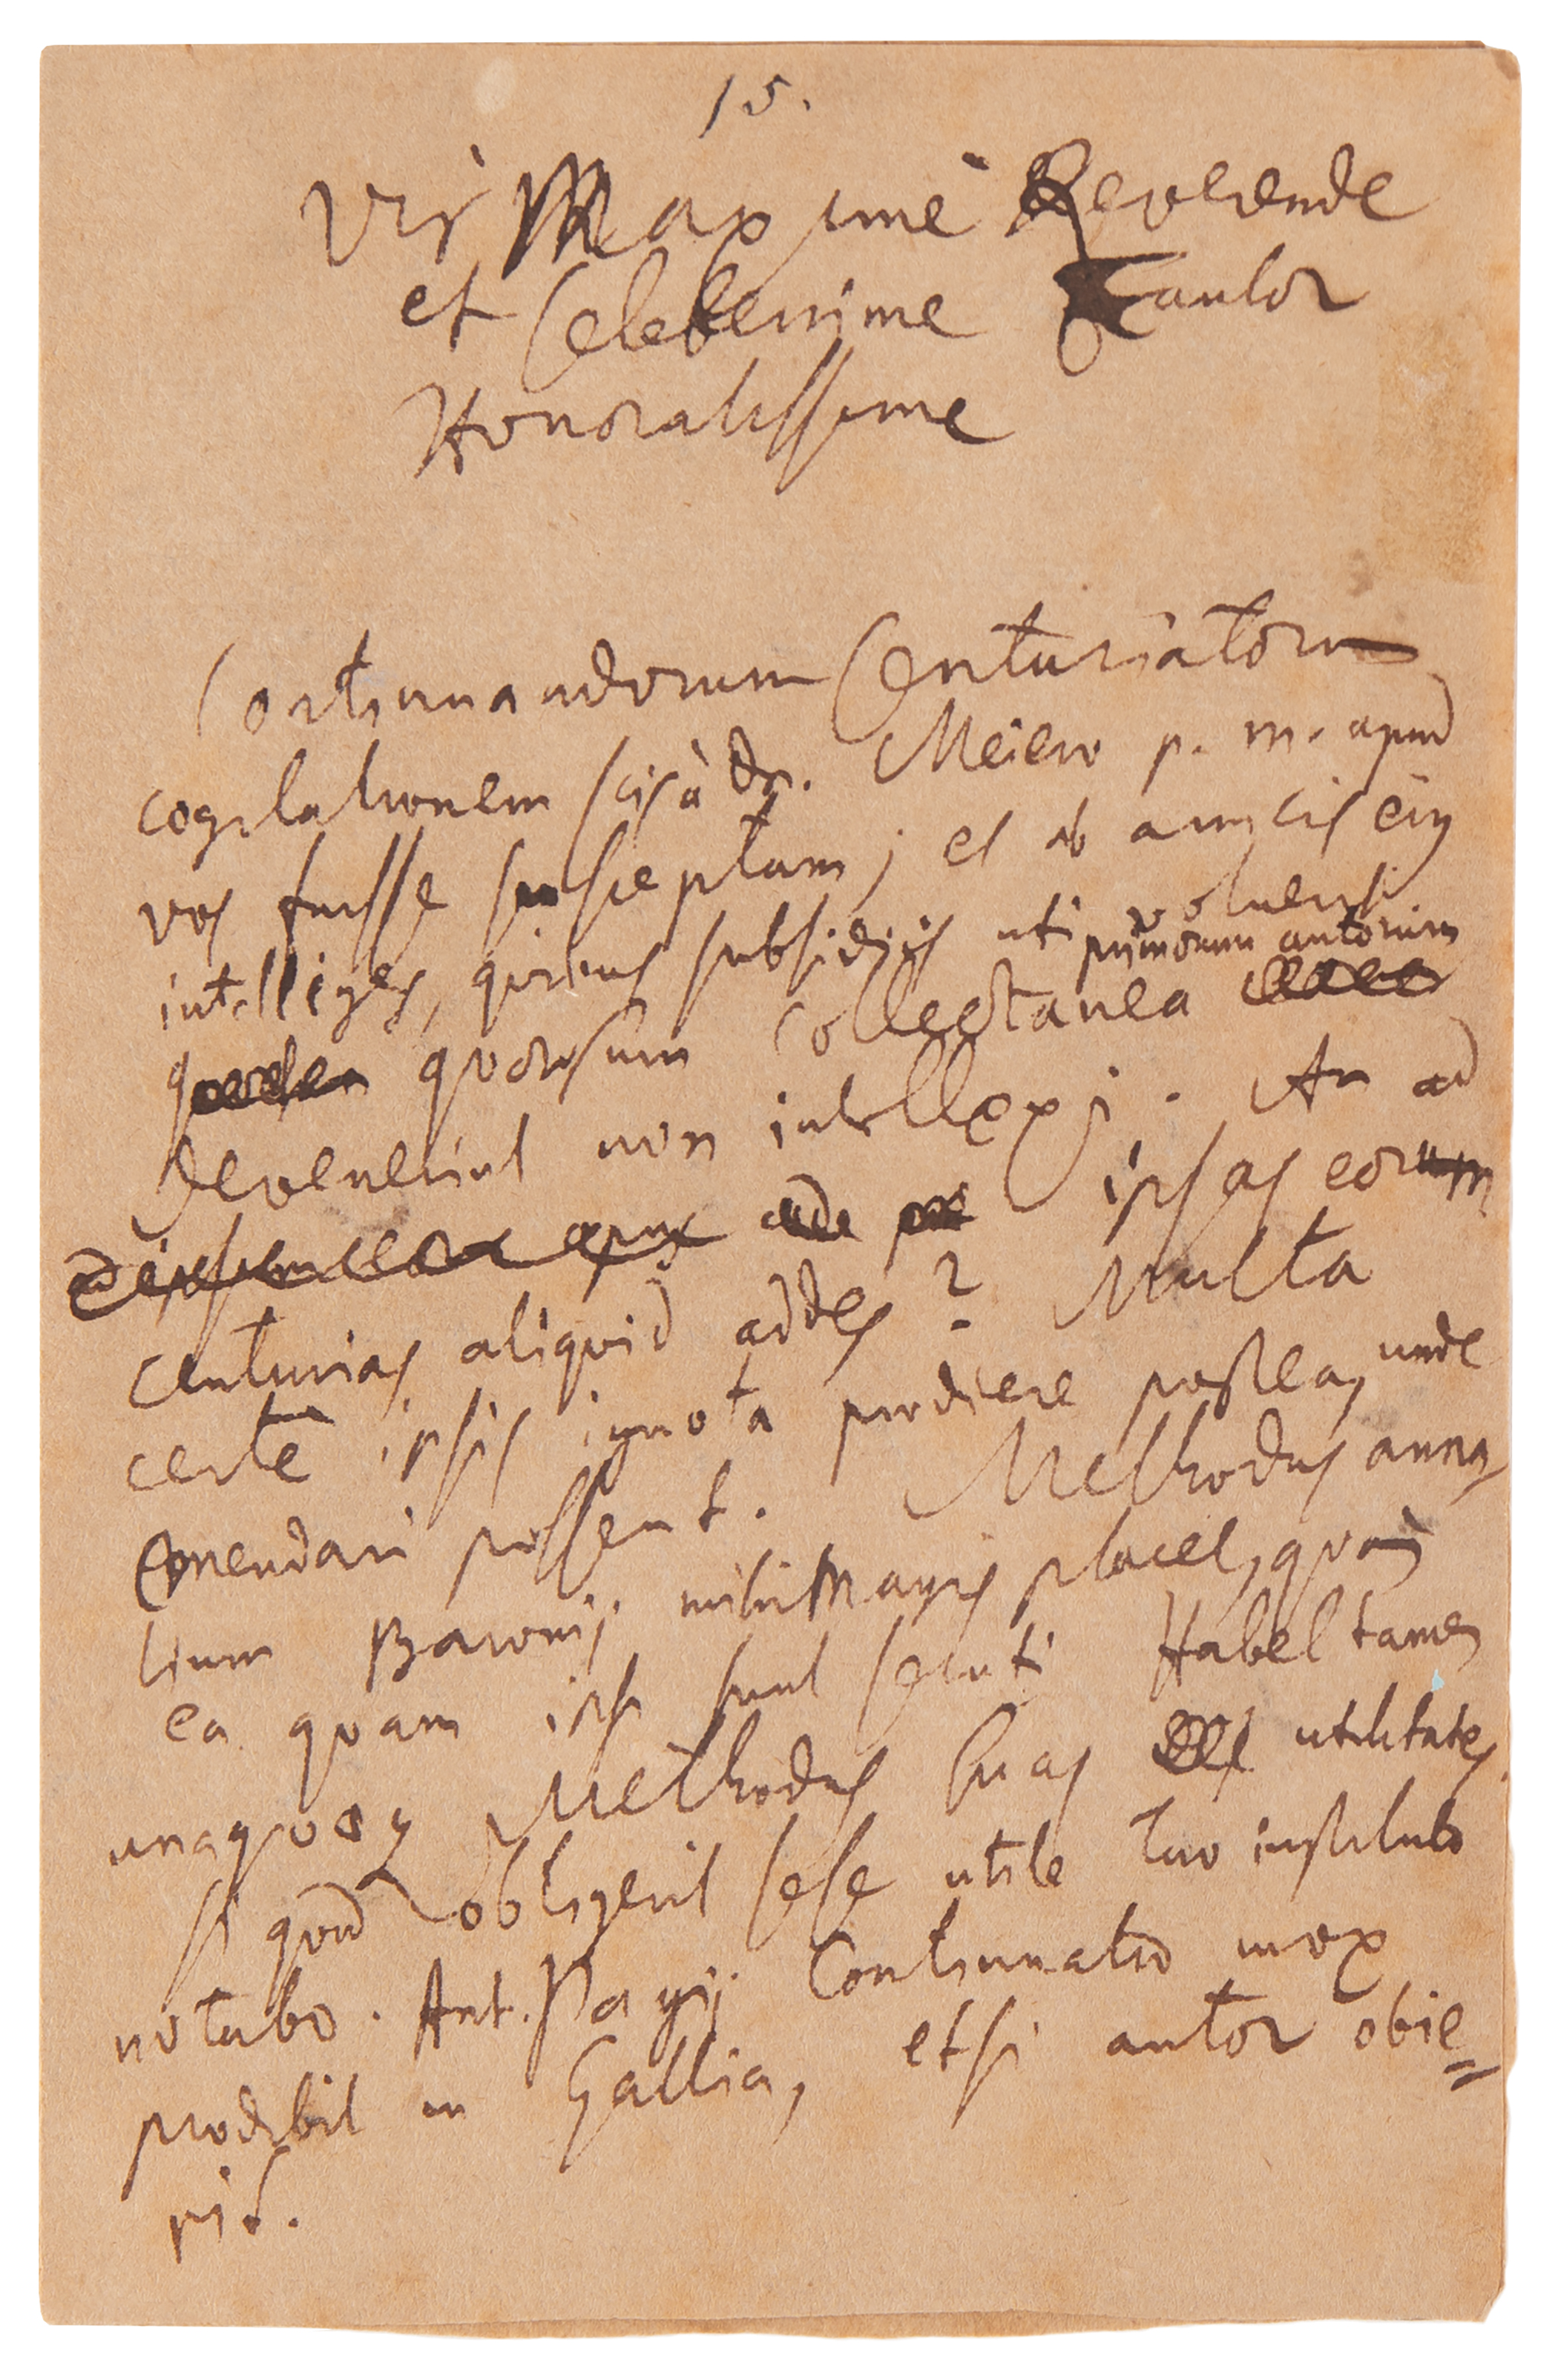 15.
Vir Maxime Reverende
et Celeberrime Fautor
Honoratissime
Continuandorum Centuriatorum
cogitationem scis à Dn. Meiero p. m. apud
vos fuisse susceptam; et ab amicis eius
intelliges, quibus subsidiis uti voluerit
primorum autorum
quorsum Collectanea
devenerint non intellexi. An ad
ipsas eorum
centurias aliquid addes? Multa
certè ipsis ignota prodiere postea, unde
emendari possent. Methodus anna-
lium Baronij mihi magis placet, quàm
ea quam ipsi sunt secuti Habet tamen
unaquaeq methodus suas utilitates.
si quid obtigerit sese utile tuo instituto
notabo. Ant. Pagij Continuatio mox
prodibit in Gallia, etsi autor obie=
rit.